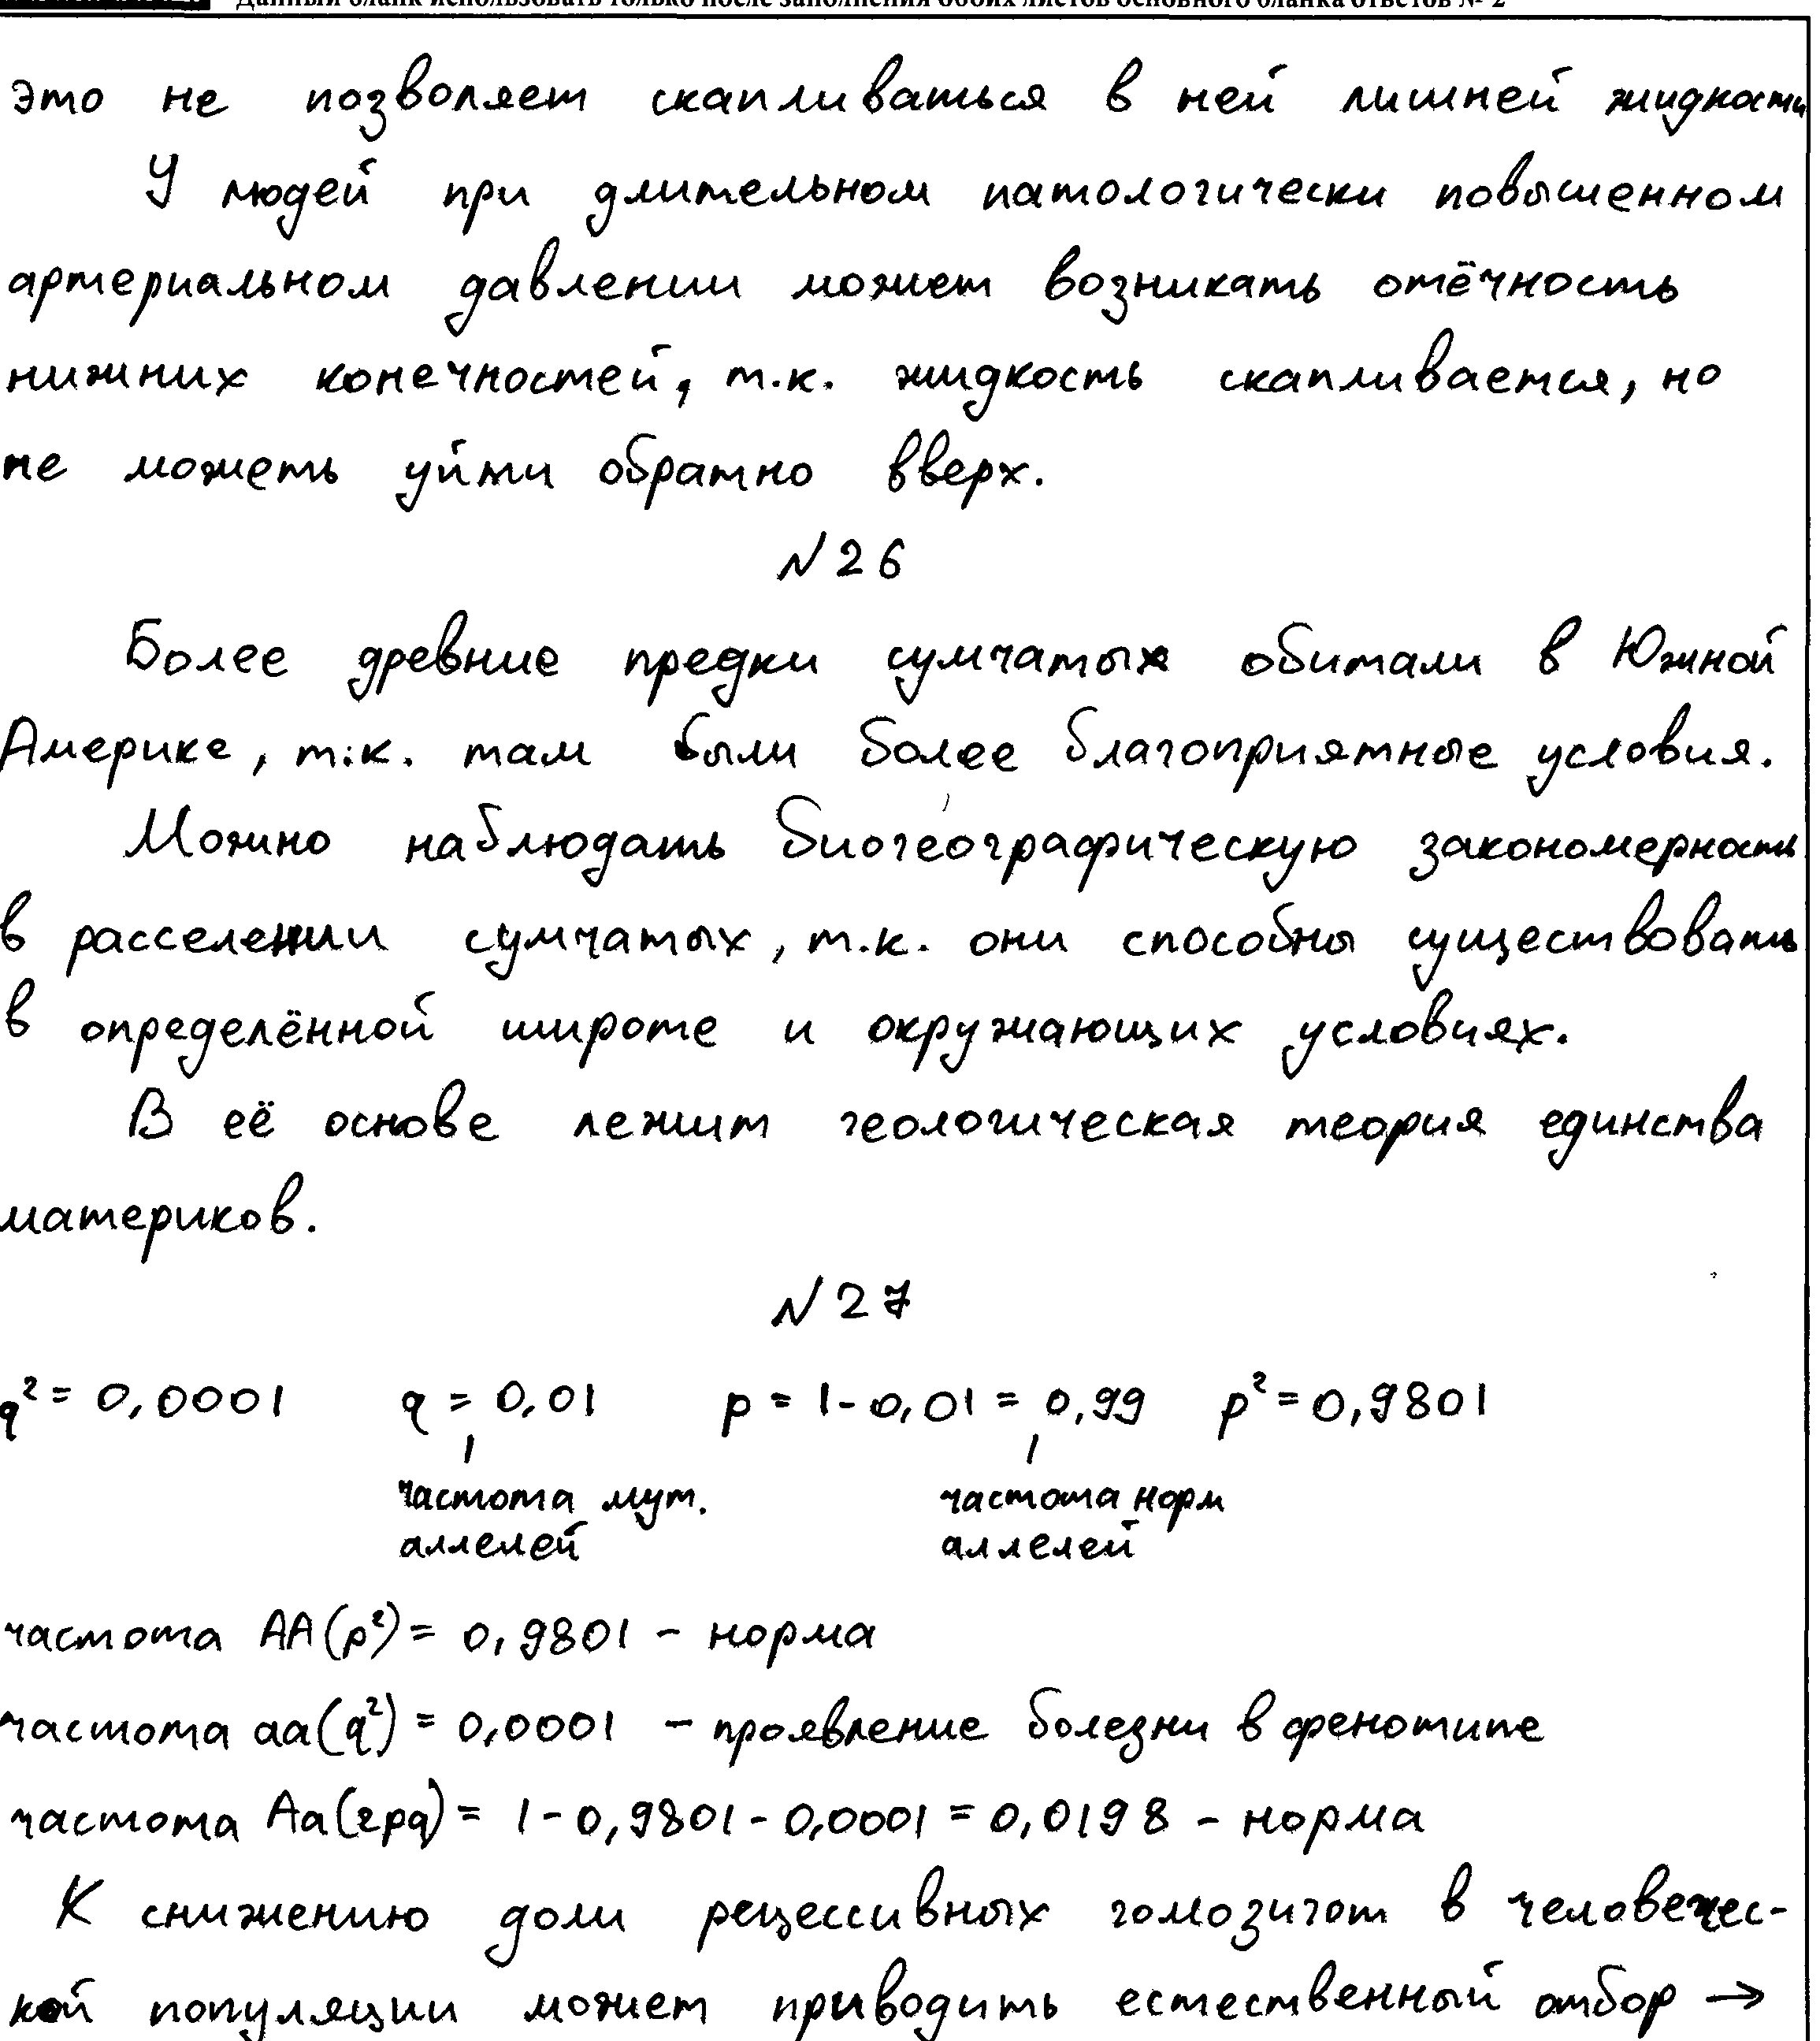 Данный бланк использовать только после заполнения обоих листов основного бланка ответов № 2
это не позволяет скапливаться в ней лишней жидкости
У людей при длительном патологически повышенном
артериальном давлении может возникать отёчность
нижних конечностей, т.к. жидкость скапливается, но
не можеть уйти обратно вверх.
№26
Более древние предки сумчатых обитали в Южной
Америке, т.к. там были более благоприятные условия.
Можно наблюдать биогеографическую закономерность
в расселении сумчатых, т.к. они способны существовать
в определённой широте и окружающих условиях.
В её основе лежит геологическая теория единства
материков.
№27
q²= 0,0001 q = 0,01 p = 1-0,01 = 0,99 p²=0,9801
частота мут. частота норм
аллелей аллелей
частота AA(p²)= 0,9801 - норма
частота aa(q²) = 0,0001 - проявление болезни в фенотипе
частота Aa(2pq)= 1-0,9801-0,0001 = 0,0198 - норма
К снижению доли рецессивных гомозигот в человечес-
кой популяции может приводить естественный отбор →